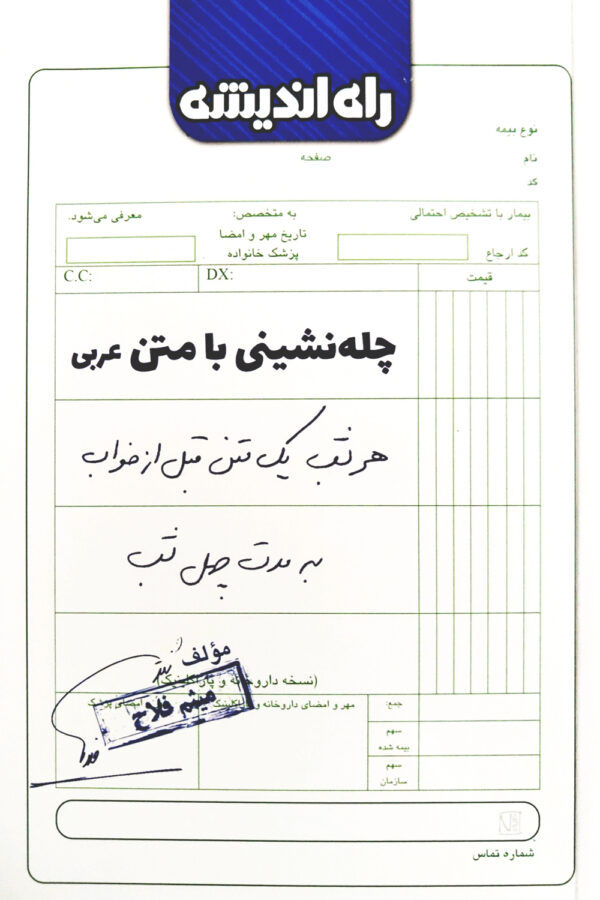 راه اندیشه
نوع بیمه
نام
صفحه
کد
بیمار با تشخیص احتمالی
به متخصص:
معرفی می‌شود.
کد ارجاع
تاریخ مهر و امضا
پزشک خانواده
قیمت
DX:
C.C:
چله‌نشینی با متن عربی
هر شب یک متن قبل از خواب
به مدت چهل شب
مؤلف
(نسخه داروخانه و پاراکلینیک)
میثم فلاح
جمع:
مهر و امضای داروخانه و پاراکلینیک
امضای پزشک
سهم
بیمه شده
سهم
سازمان
شماره تماس